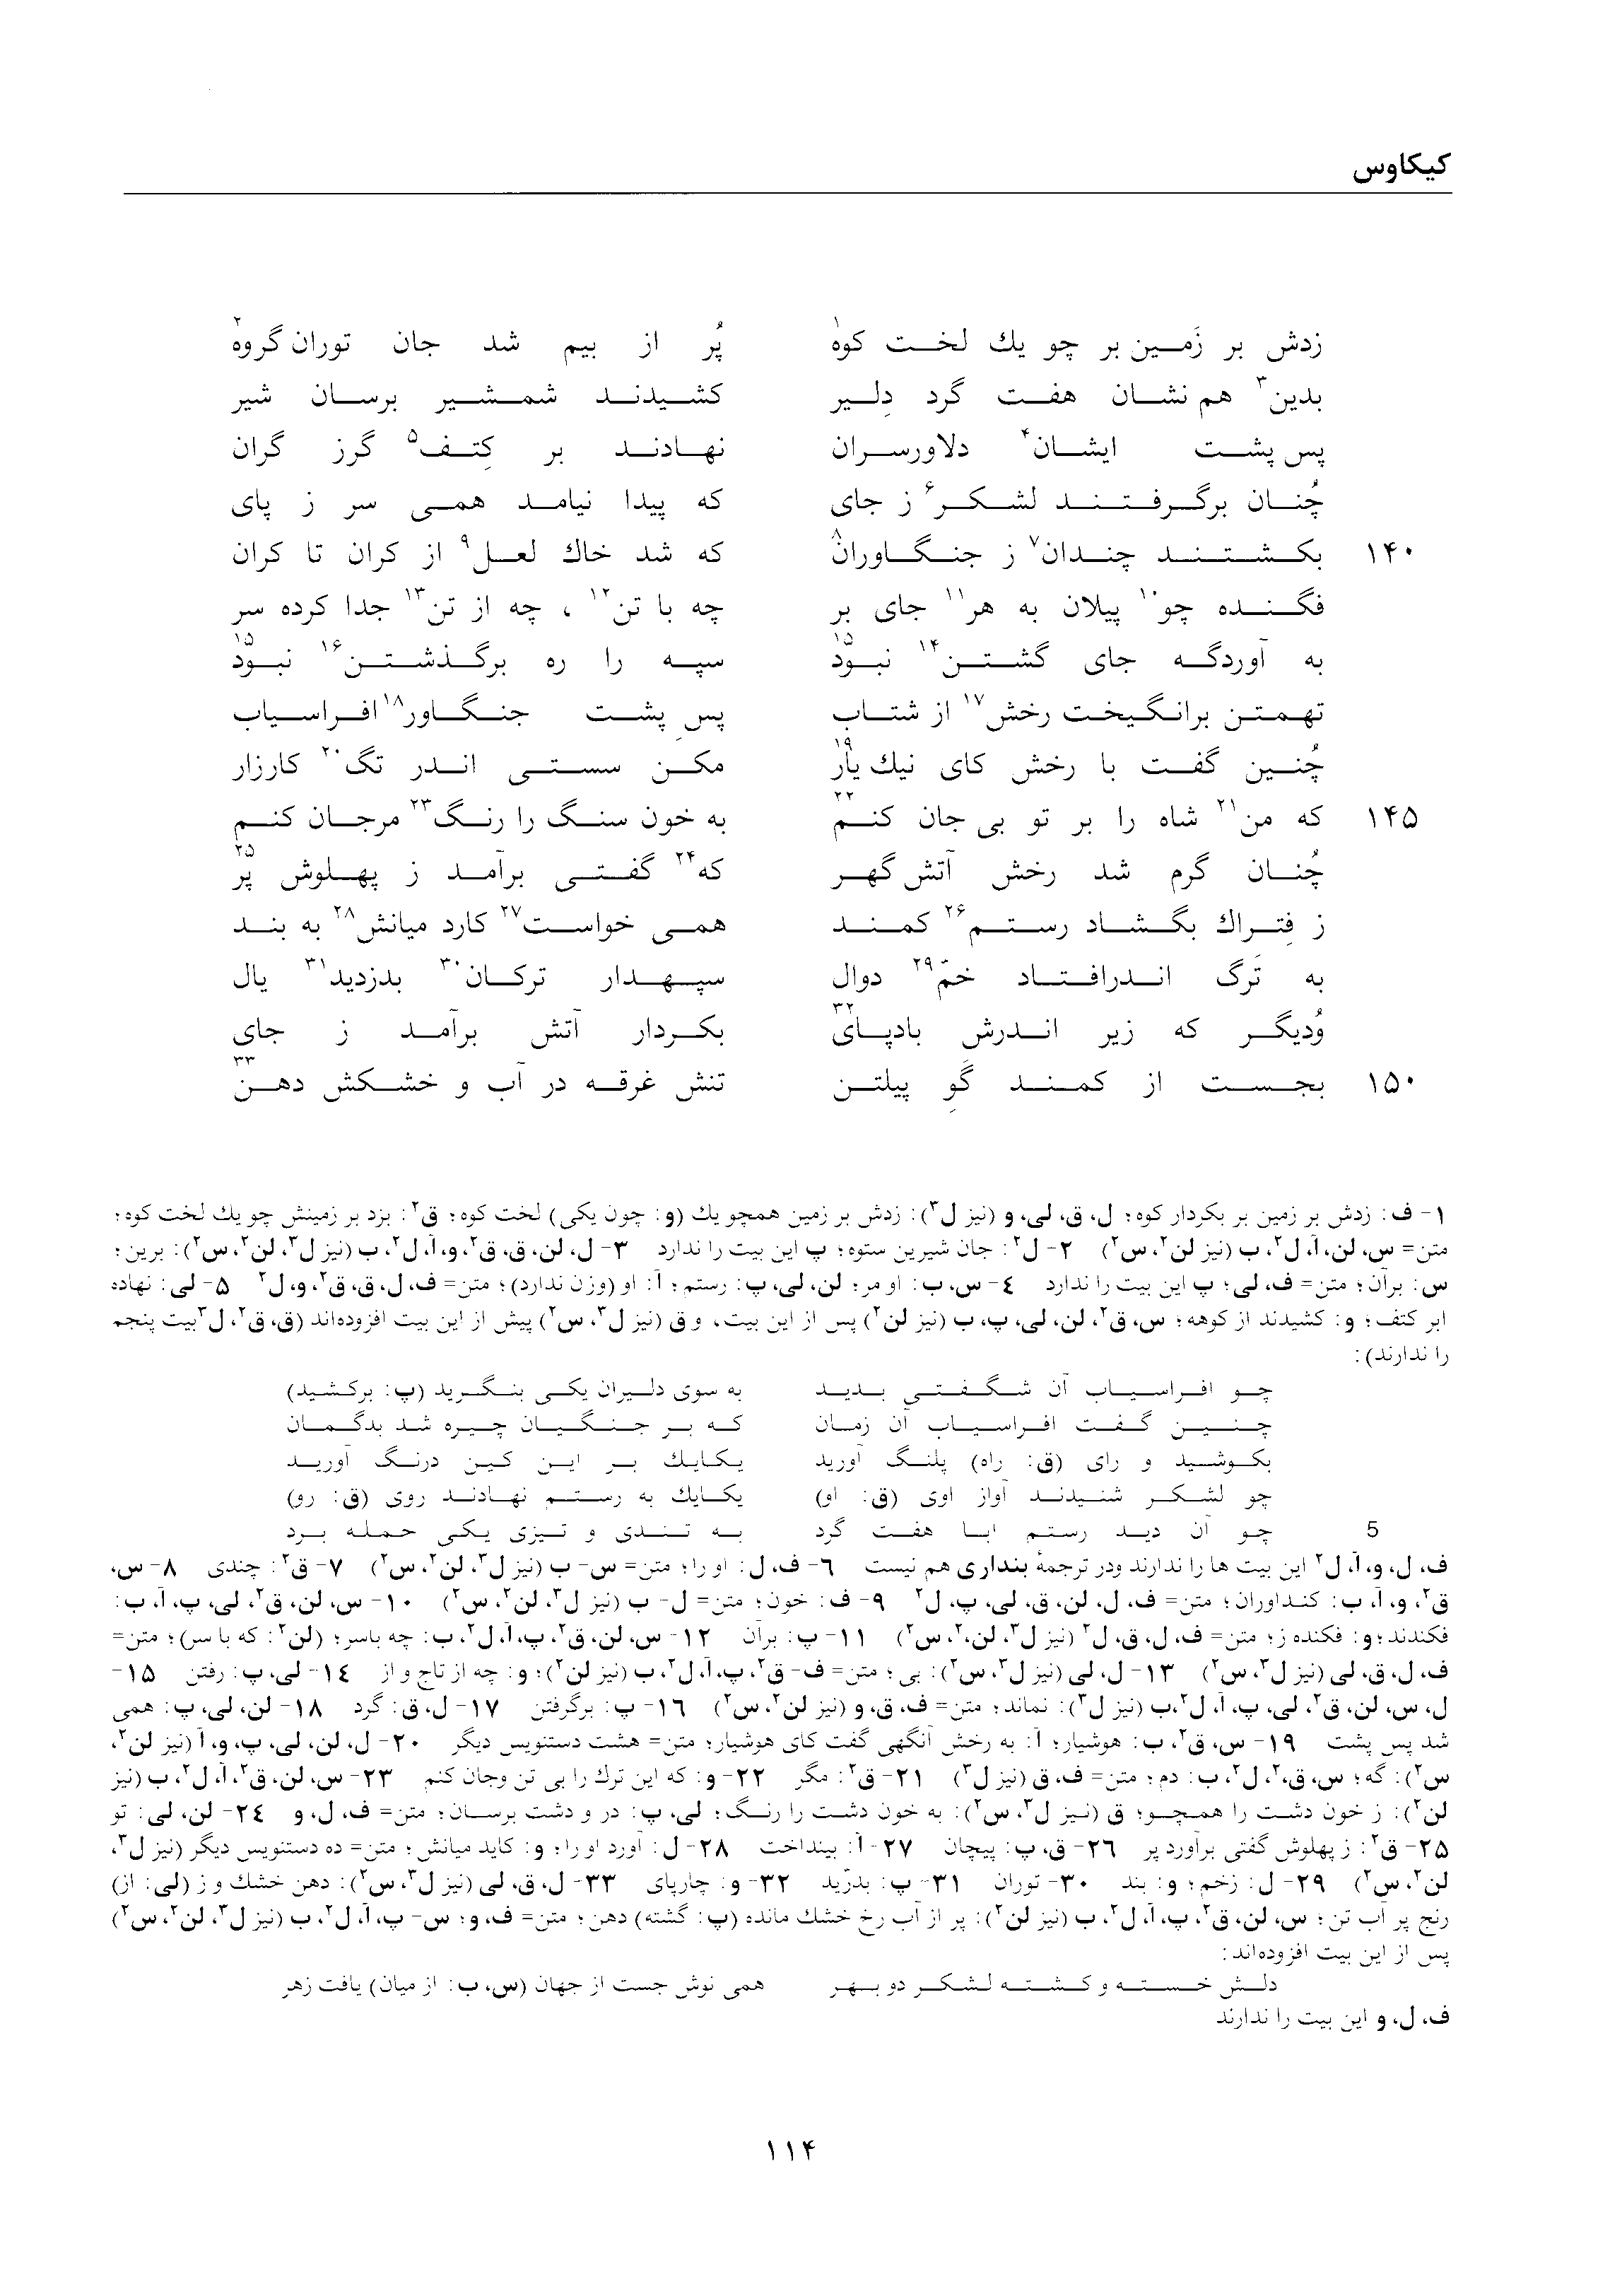 کیکاوس
زدش بر زَمین بر چو یك لخت کوه۱ پُر از بیم شد جان توران گروه۲
بدین۳ هم نشان هفت گرد دِلیر کشیدند شمشیر برسان شیر
پسِ پشت ایشان۴ دلاورسران نهادند بر کِتف۵ گرز گران
چُنان برگرفتند لشکر۶ ز جای که پیدا نیامد همی سر ز پای
۱۴۰ بکشتند چندان۷ ز جنگاوران۸ که شد خاك لعل۹ از کران تا کران
فگنده چو۱۰ پیلان به هر۱۱ جای بر چه با تن۱۲، چه از تن۱۳ جدا کرده سر
به آوردگه جای گشتن۱۴ نبود۱۵ سپه را ره برگذشتن۱۶ نبود۱۵
تهمتن برانگیخت رخش۱۷ از شتاب پسِ پشت جنگاور۱۸ افراسیاب
چُنین گفت با رخش کای نیك یار۱۹ مکن سستی اندر تگ۲۰ کارزار
۱۴۵ که من۲۱ شاه را بر تو بی جان کنم۲۲ به خون سنگ را رنگ۲۳ مرجان کنم
چُنان گرم شد رخش آتش گهر که۲۴ گفتی برآمد ز پهلوش پر۲۵
ز فِتراك بگشاد رستم۲۶ کمند همی خواست۲۷ کارد میانش۲۸ به بند
به تَرگ اندرافتاد خمّ۲۹ دوال سپهدار ترکان۳۰ بدزدید۳۱ یال
وُدیگر که زیر اندرش بادپای۳۲ بکردار آتش برآمد ز جای
۱۵۰ بجست از کمند گَوِ پیلتن تنش غرقه در آب و خشکش دهن۳۳
۱- ف: زدش بر زمین بر بکردار کوه؛ ل، ق، لی، و (نیز ل۳): زدش بر زمین همچو یك (و: چون یکی) لخت کوه؛ ق۲: بزد بر زمینش چو یك لخت کوه؛
متن= س، لن، آ، ل۲، ب (نیز لن۲، س۲) ۲- ل۲: جان شیرین ستوه؛ پ این بیت را ندارد ۳- ل، لن، ق، ق۲، و، آ، ل۲، ب (نیز ل۳، لن۲، س۲): برین؛
س: برآن؛ متن= ف، لی؛ پ این بیت را ندارد ٤- س، ب: او مر؛ لن، لی، پ: رستم؛ آ: او (وزن ندارد)؛ متن= ف، ل، ق، ق۲، و، ل۲ ۵- لی: نهاده
ابر کتف؛ و: کشیدند از کوهه؛ س، ق۲، لن، لی، پ، ب (نیز لن۲) پس از این بیت، و ق (نیز ل۳، س۲) پیش از این بیت افزوده‌اند (ق، ق۲، ل۳ بیت پنجم
را ندارند):
چو افراسیاب آن شگفتی بدید به سوی دلیران یکی بنگرید (پ: برکشید)
چنین گفت افراسیاب آن زمان که بر جنگیان چیره شد بدگمان
بکوشید و رای (ق: راه) پلنگ آورید یکایك بر این کین درنگ آورید
چو لشکر شنیدند آواز اوی (ق: او) یکایك به رستم نهادند روی (ق: رو)
5 چو آن دید رستم ابا هفت گرد به تندی و تیزی یکی حمله برد
ف، ل، و، آ، ل۲ این بیت ها را ندارند ودر ترجمهٔ بنداری هم نیست ٦- ف، ل: او را؛ متن= س- ب (نیز ل۳، لن۲، س۲) ۷- ق۲: چندی ۸- س،
ق۲، و، آ، ب: کنداوران؛ متن= ف، ل، لن، ق، لی، پ، ل۲ ۹- ف: خون؛ متن= ل- ب (نیز ل۳، لن۲، س۲) ۱۰- س، لن، ق۲، لی، پ، آ، ب:
فکندند؛ و: فکنده ز؛ متن= ف، ل، ق، ل۲ (نیز ل۳، لن۲، س۲) ۱۱- پ: برآن ۱۲- س، لن، ق۲، پ، آ، ل۲، ب: چه باسر؛ (لن۲: که با سر)؛ متن=
ف، ل، ق، لی (نیز ل۳، س۲) ۱۳- ل، لی (نیز ل۳، س۲): بی؛ متن= ف- ق۲، پ، آ، ل۲، ب (نیز لن۲)؛ و: چه از تاج و از ۱٤- لی، پ: رفتن ۱۵-
ل، س، لن، ق۲، لی، پ، آ، ل۲، ب (نیز ل۳): نماند؛ متن= ف، ق، و (نیز لن۲، س۲) ۱٦- پ: برگرفتن ۱۷- ل، ق: گرد ۱۸- لن، لی، پ: همی
شد پس پشت ۱۹- س، ق۲، ب: هوشیار؛ آ: به رخش آنگهی گفت کای هوشیار؛ متن= هشت دستنویس دیگر ۲۰- ل، لن، لی، پ، و، آ (نیز لن۲،
س۲): گه؛ س، ق۲، ل۲، ب: دم؛ متن= ف، ق (نیز ل۳) ۲۱- ق۲: مگر ۲۲- و: که این ترك را بی تن وجان کنم ۲۳- س، لن، ق۲، آ، ل۲، ب (نیز
لن۲): ز خون دشت را همچو؛ ق (نیز ل۳، س۲): به خون دشت را رنگ؛ لی، پ: در و دشت برسان؛ متن= ف، ل، و ۲٤- لن، لی: تو
۲۵- ق۲: ز پهلوش گفتی برآورد پر ۲٦- ق، پ: پیچان ۲۷- آ: بینداخت ۲۸- ل: آورد او را؛ و: کاید میانش؛ متن= ده دستنویس دیگر (نیز ل۳،
لن۲، س۲) ۲۹- ل: زخم؛ و: بند ۳۰- توران ۳۱- پ: بدرّید ۳۲- و: چارپای ۳۳- ل، ق، لی (نیز ل۳، س۲): دهن خشك و ز (لی: از)
رنج پر آب تن؛ س، لن، ق۲، پ، آ، ل۲، ب (نیز لن۲): پر از آب رخ خشك مانده (پ: گشته) دهن؛ متن= ف، و؛ س- پ، آ، ل۲، ب (نیز ل۳، لن۲، س۲)
پس از این بیت افزوده‌اند:
دلش خسته و کشته لشکر دو بهر همی نوش جست از جهان (س، ب: از میان) یافت زهر
ف، ل، و این بیت را ندارند
۱۱۴